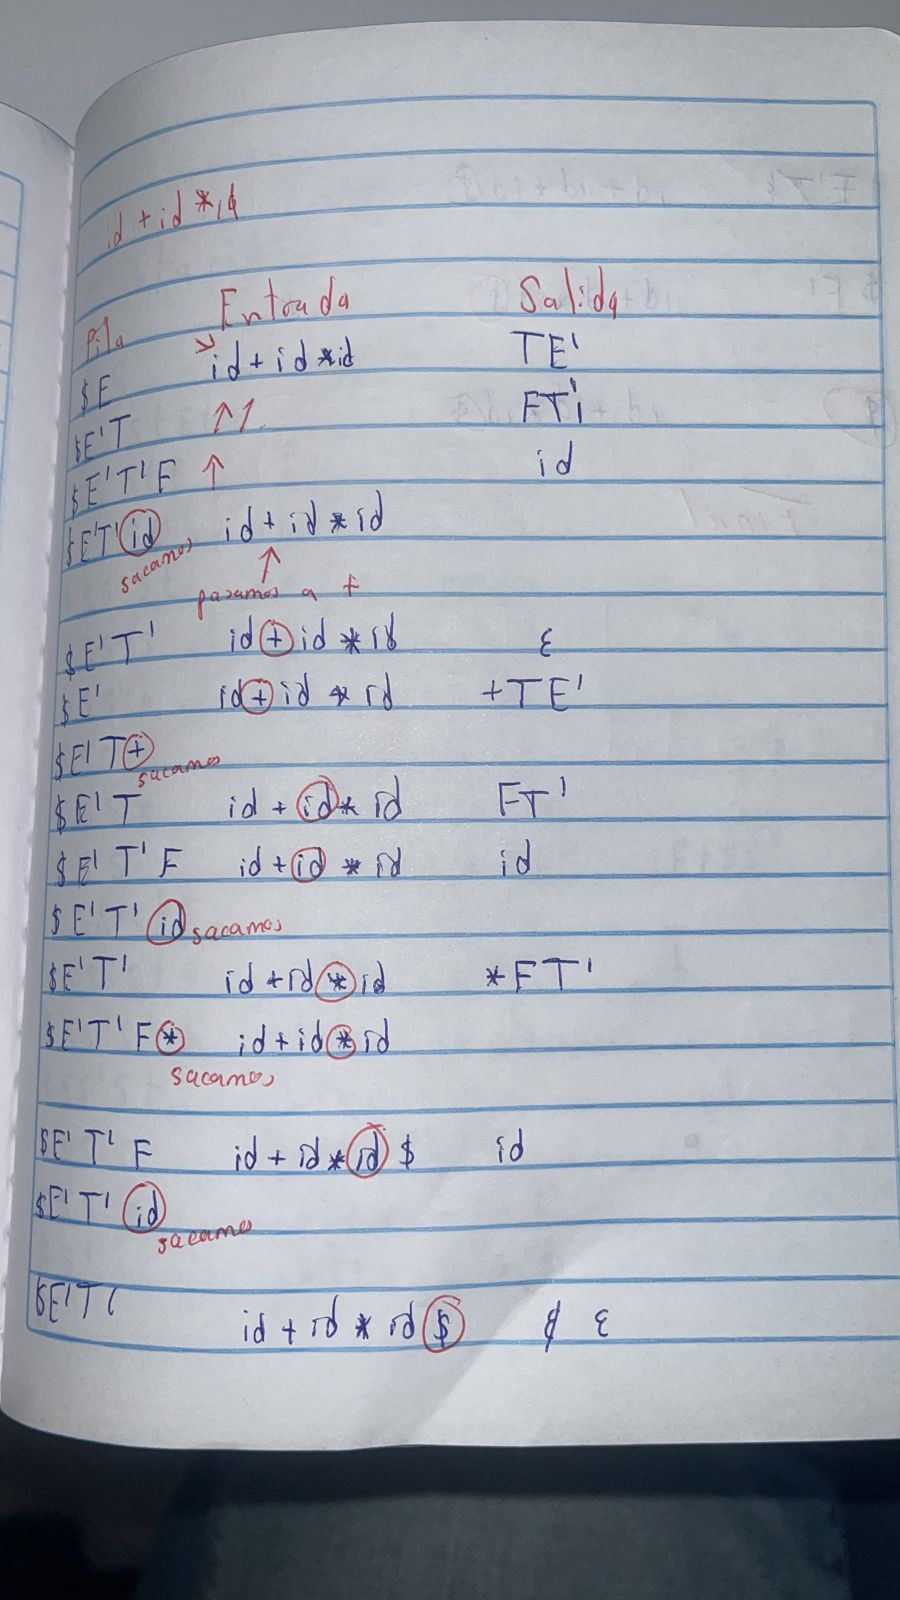 id + id * id
Pila Entrada Salida
$E id + id * id TE'
$E'T FT'
$E'T'F id
$E'T' id id + id * id
sacamos
pasamos a +
$E'T' id + id * id ε
$E' id + id * id +TE'
$E'T+
sacamos
$E'T id + id * id FT'
$E'T'F id + id * id id
$E'T' id sacamos
$E'T' id + id * id *FT'
$E'T'F* id + id * id
sacamos
$E'T'F id + id * id $ id
$E'T' id
sacamos
$E'T'
id + id * id $ ε